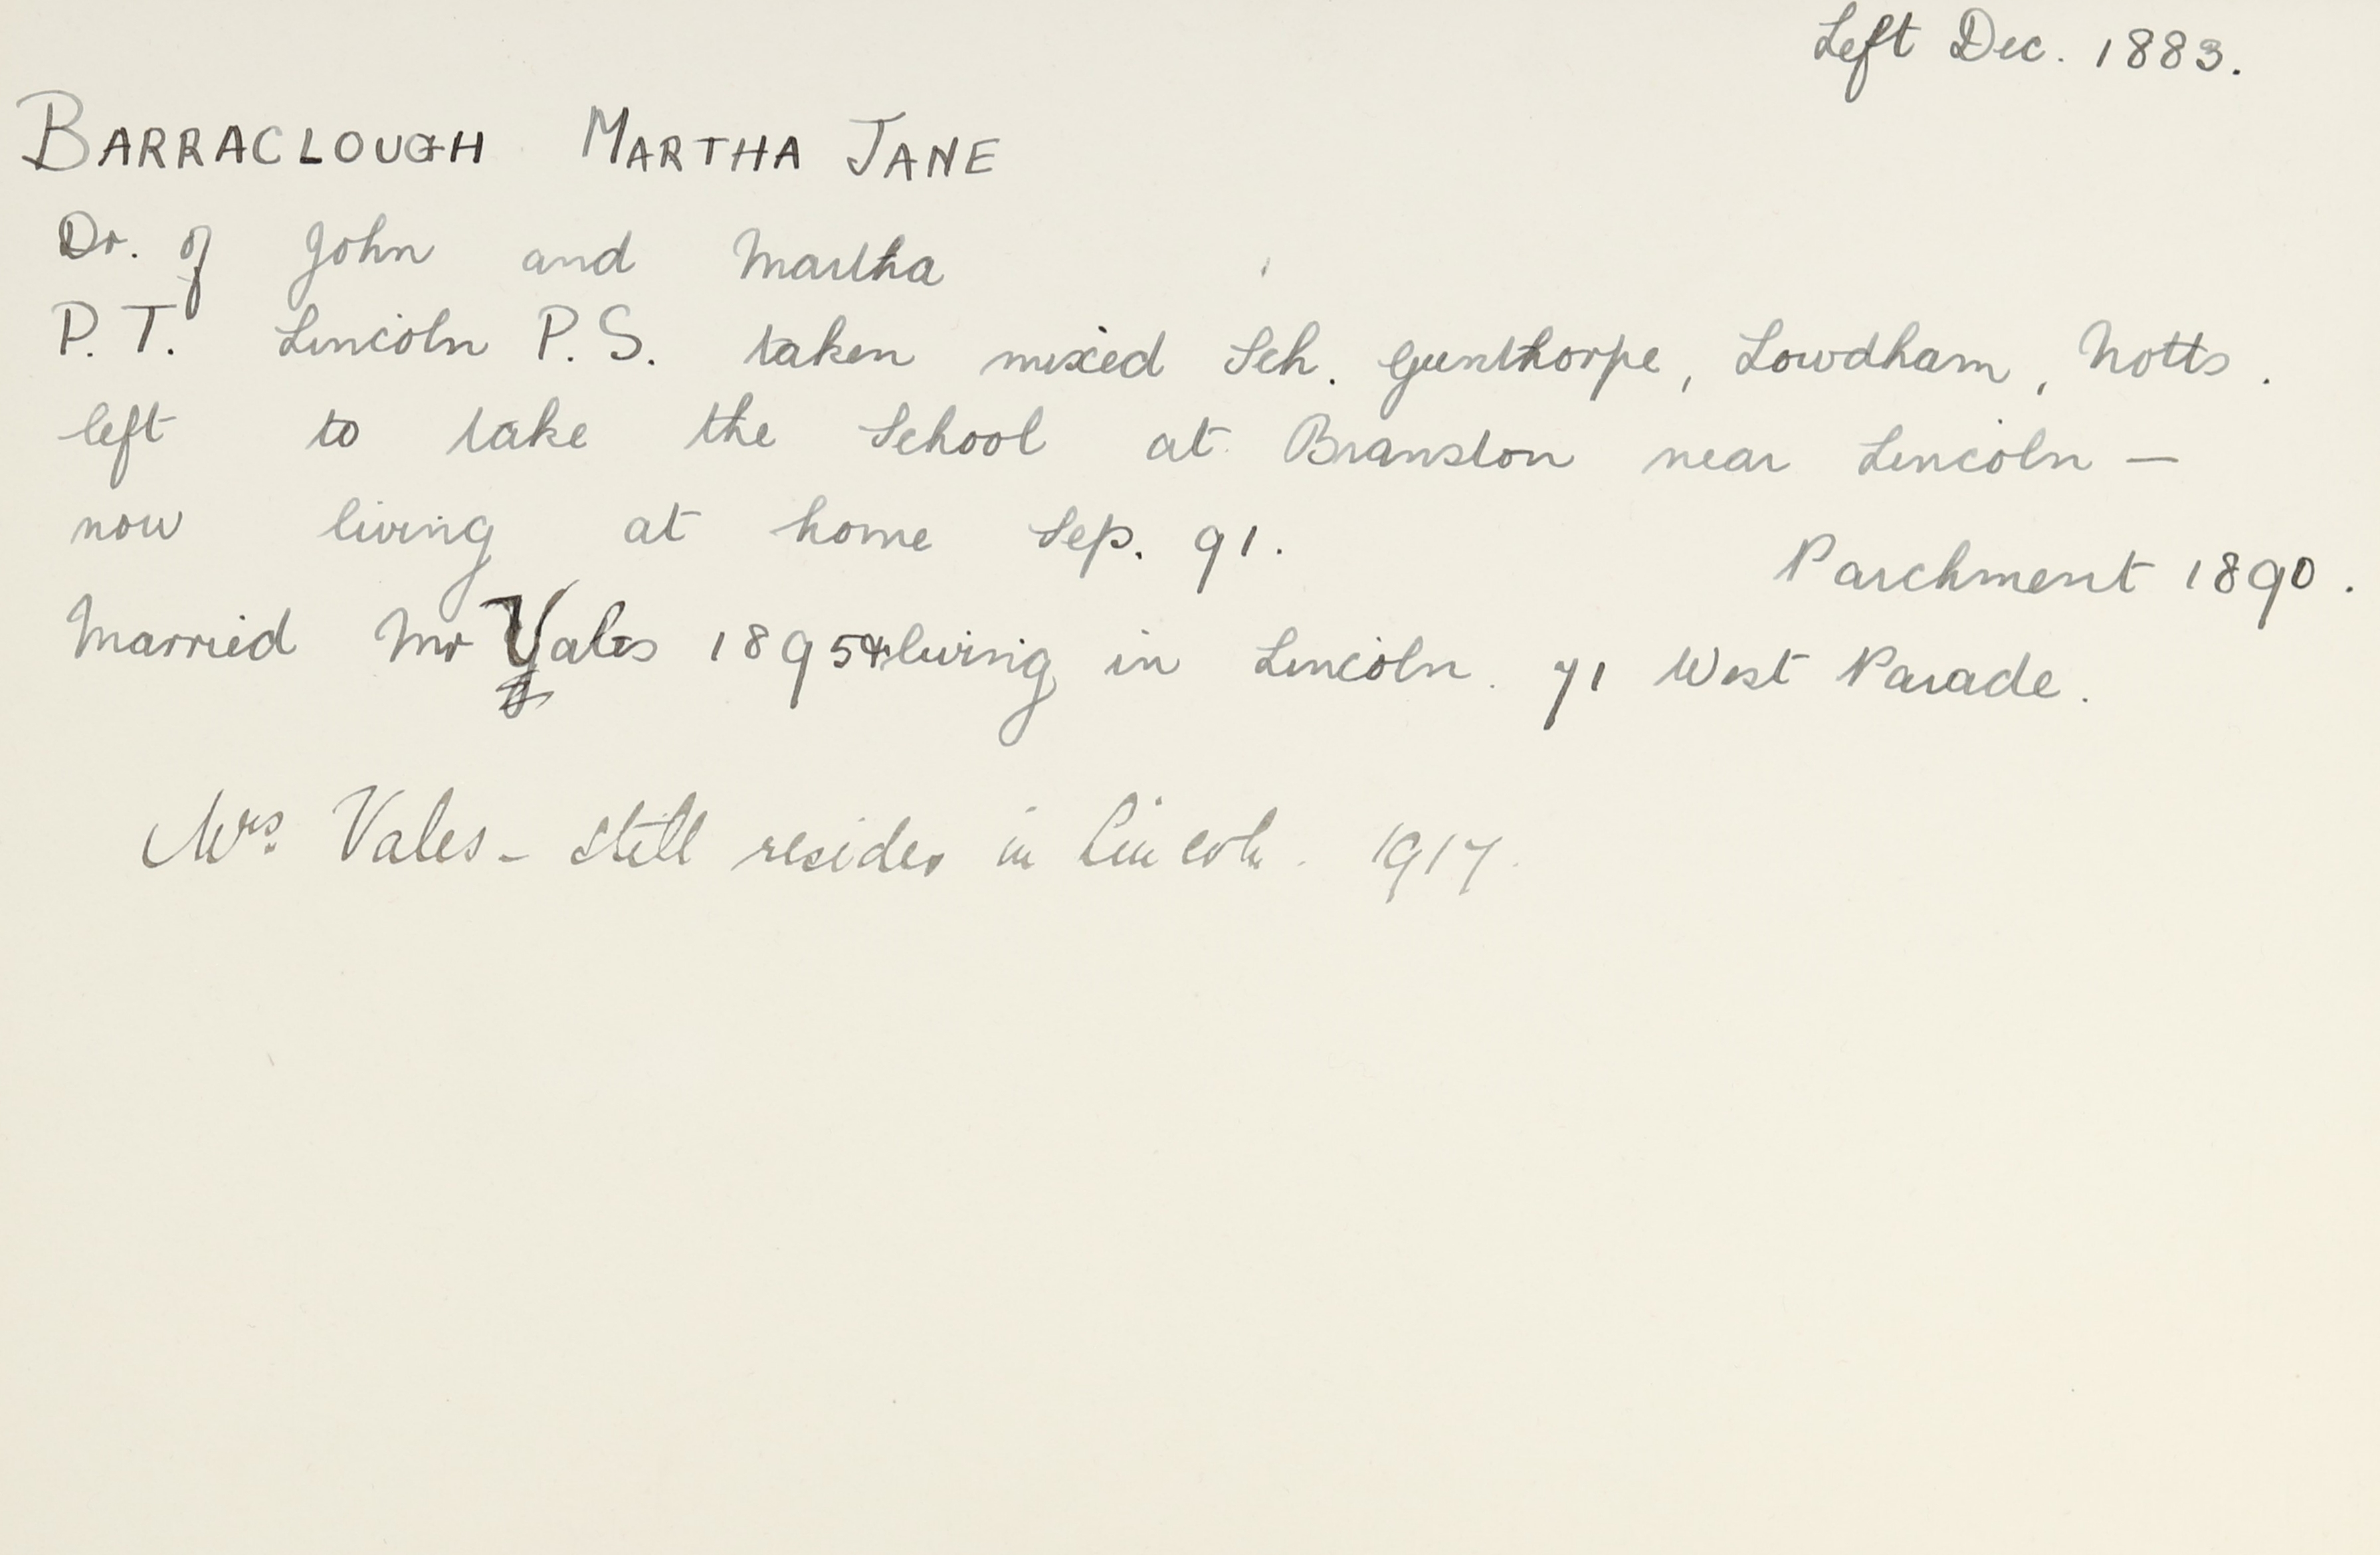 Left Dec. 1883.
BARRACLOUGH MARTHA JANE
Dr. of John and Martha
P.T. Lincoln P.S. taken mixed Sch. Gunthorpe, Lowdham, Notts.
left to take the School at Branston near Lincoln —
now living at home Sep. 91.
Parchment 1890.
Married Mr Vales 1895 & living in Lincoln. 71 West Parade.
Mrs Vales - still resides in Lincoln. 1917.